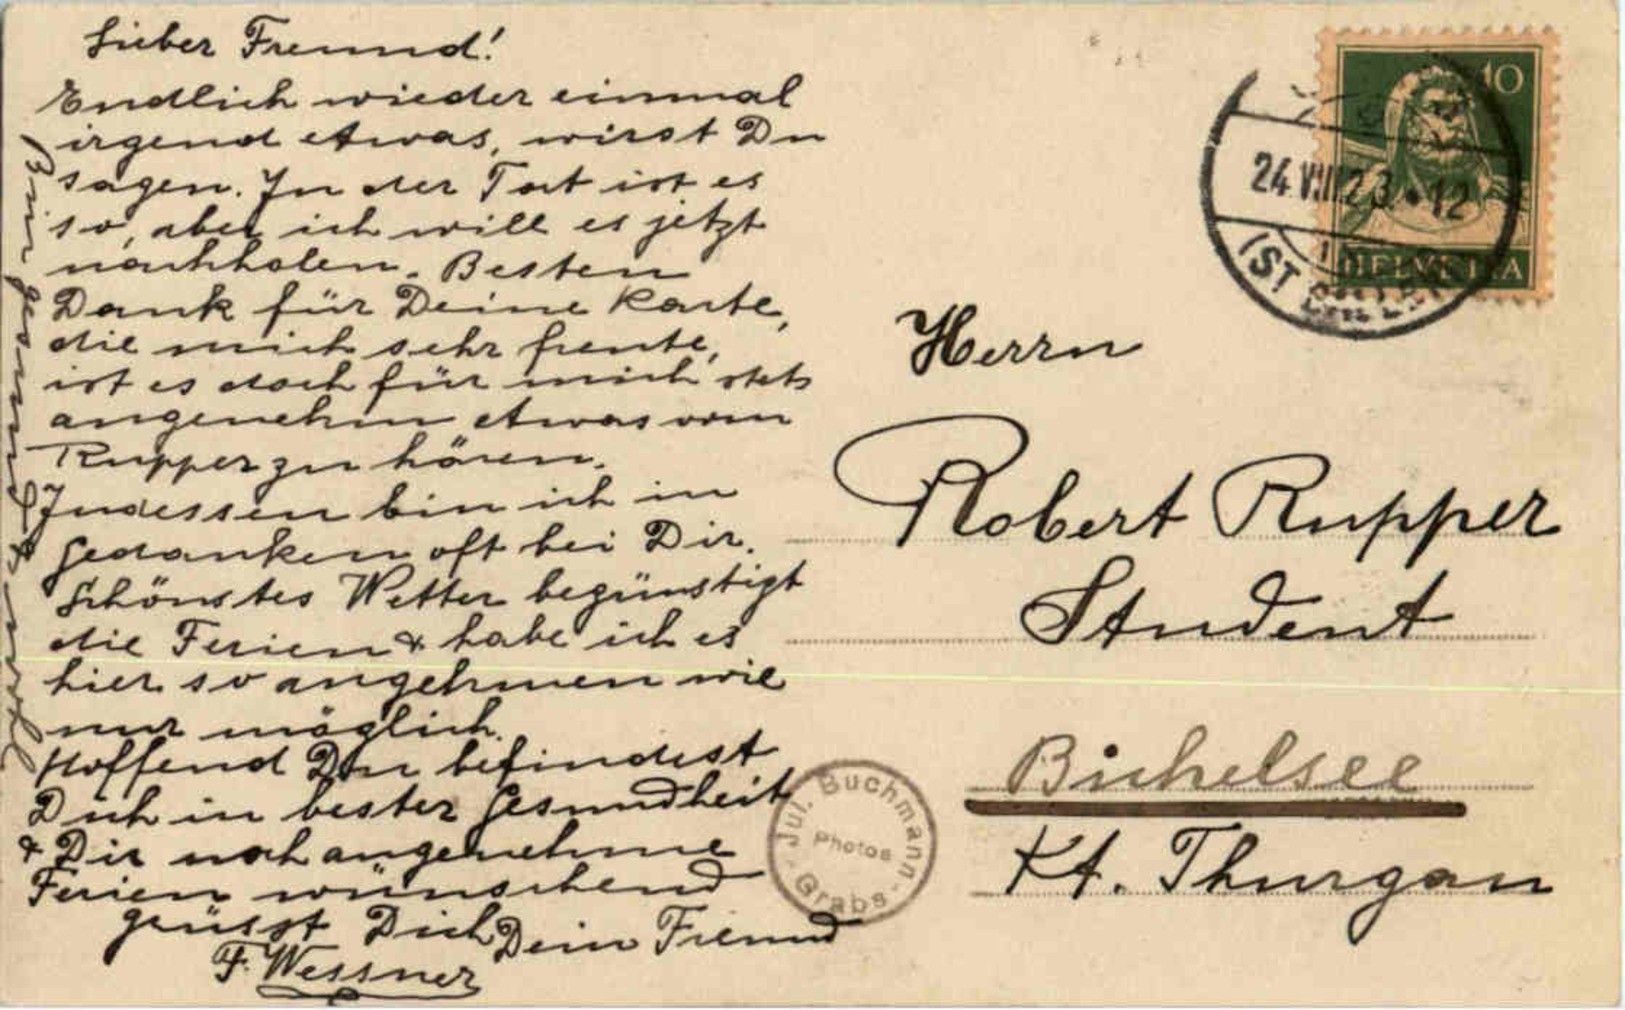 Lieber Freund!
Endlich wieder einmal
irgend etwas, wirst Du
sagen. In der Tat ist es
so, aber ich will es jetzt
nachholen. Besten
Dank für Deine Karte,
die mich sehr freute,
ist es doch für mich stets
angenehm etwas vom
Rupper zu hören.
Indessen bin ich in
Gedanken oft bei Dir.
Schönstes Wetter begünstigt
die Ferien & habe ich es
hier so angehmen wie
nur möglich.
Hoffend Du befindest
Dich in bester Gesundheit
& Dir noch angenehme
Ferien wünschend
grüsst Dich Dein Freund
F. Wessner
Bin gesund & wohl
10
24.VIII.23.-12
HELVETIA
(ST. GALLEN)
Herrn
Robert Rupper
Student
Bichelsee
Kt. Thurgau
Jul. Buchmann
Photos
Grabs